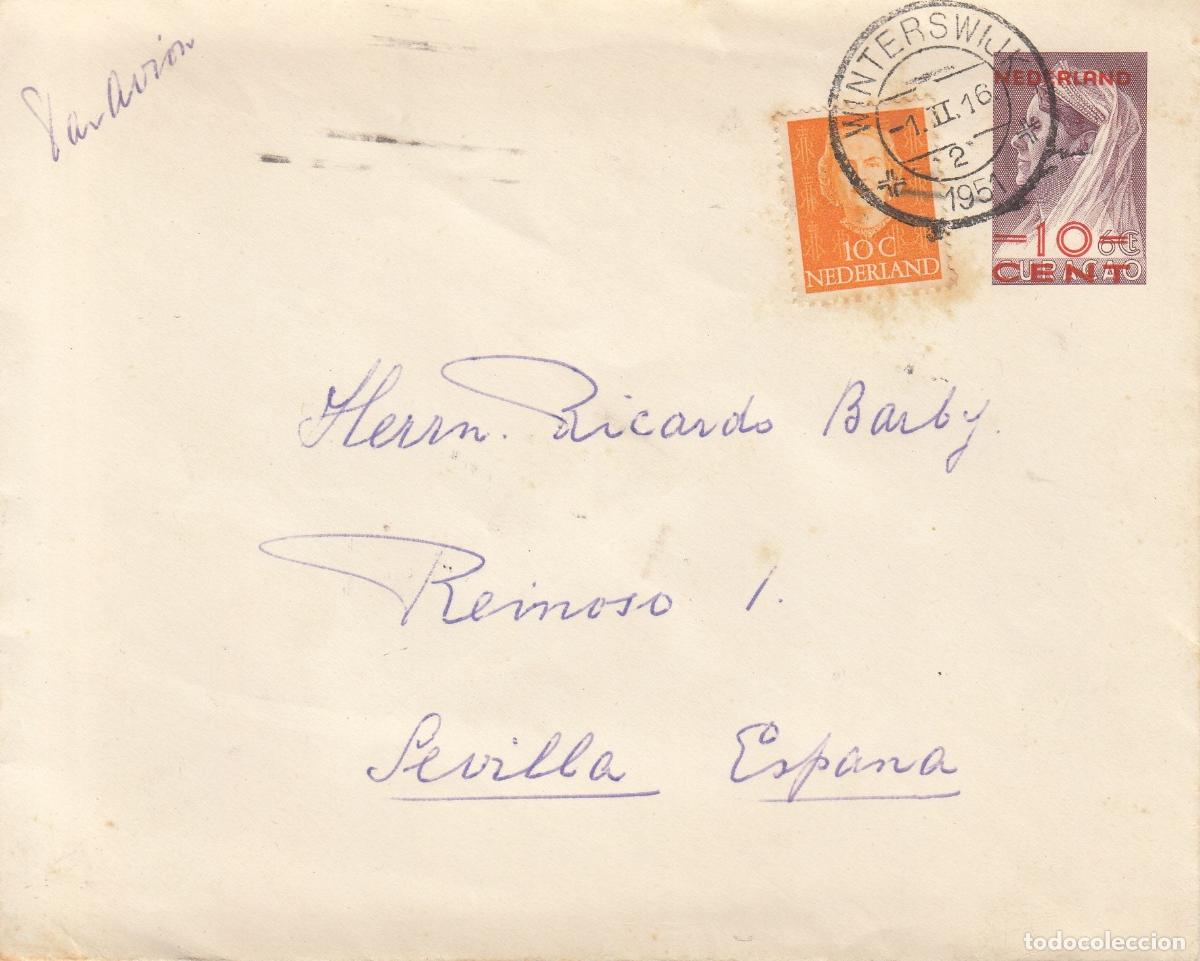 Par Avion
WINTERSWIJK
-1.II.16
2
1951
NEDERLAND
=10= 6Ct
CURAÇAO
CENT
10C
NEDERLAND
Herrn. Ricardo Barby.
Reinoso 1.
Sevilla España
todocoleccion